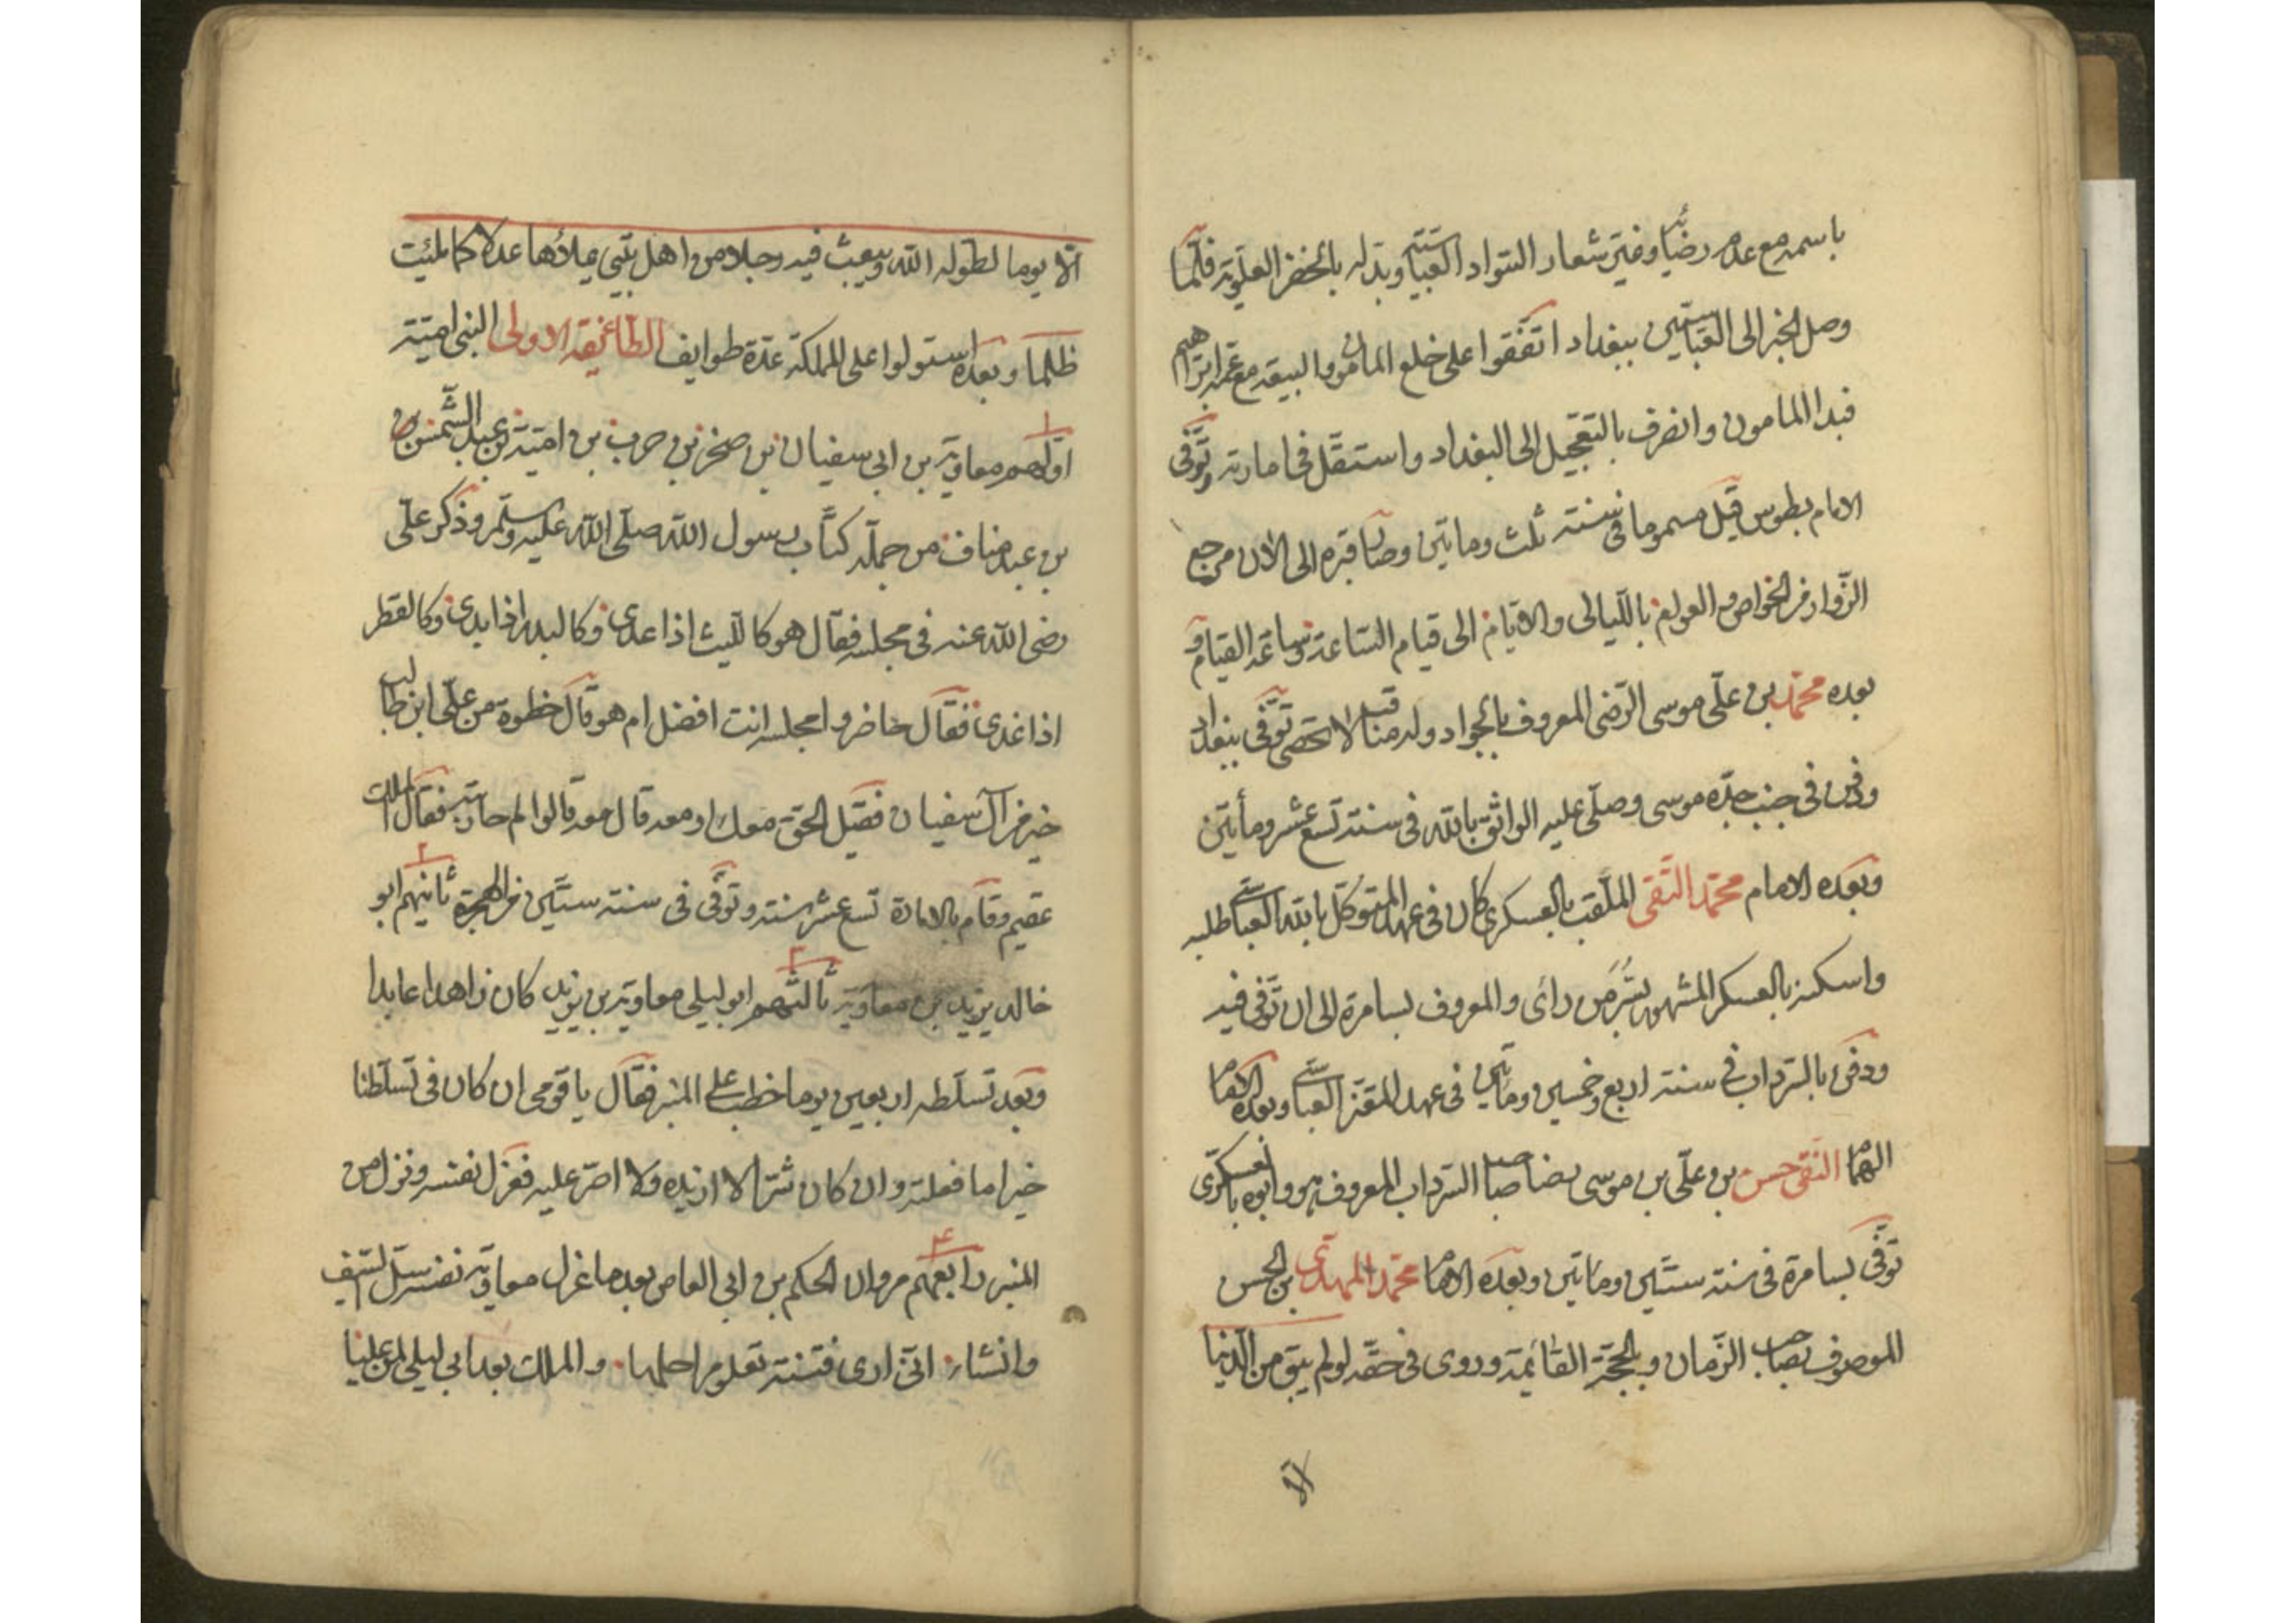 باسمه مع عدم رضائه وغير شعار السواد العباسية وبدله بالخضر العلوية فلما
وصل الخبر الى العباسيين ببغداد اتفقوا على خلع المامون والبيعة مع عمه ابراهيم
فبدا المامون وانصرف بالتعجيل الى البغداد واستقل فى امارته وتوفى
الامام بطوس قيل مسموما فى سنة ثلث وماتين وصار قبره الى الان مرجع
الزوار من الخواص والعوام بالليالى والايام الى قيام الساعة وساعة القيام و
بعده محمد بن على موسى الرضى المعروف بالجواد وله مناقب لا تحصى توفى ببغداد
ودفن فى جنب جده موسى وصلى عليه الواثق بالله فى سنة تسع عشر ومأتين
وبعده الامام محمد التقى الملقب بالعسكرى كان فى عهد المتوكل بالله العباسى طلبه
واسكنه بالعسكر المشهور بسر من رائ والمعروف بسامرة الى ان توفى فيه
ودفن بالسرداب فى سنة اربع وخمسين وماتين فى عهد المعتز العباسى وبعده الامام
الهمام النقى حسن بن على بن موسى رضا صاحب السرداب المعروف هو وابوه بالعسكرى
توفى بسامرة فى سنة ستين وماتين وبعده الامام محمد المهدى بن الحسن
الموصوف بصاحب الزمان وبالحجة القائمة وروى فى حقه لو لم يبق من الدنيا
الا
الا يوما لطوله الله ويبعث فيه رجلا من اهل بيتى يملاؤها عدلا كما ملئت
ظلما وبعده استولوا على المملكة عدة طوايف الطائفة الاولى البنى امية
اولهم معاوية بن ابى سفيان بن صخر بن حرب بن امية بن عبد الشمس بن
بن عبد مناف من جملة كتاب رسول الله صلى الله عليه وسلم وذكر على
رضى الله عنه فى مجلسه فقال هو كالليث اذا عدى وكالبدر اذا بدى وكالقطر
اذا غدى فقال حاضروا مجلسه انت افضل ام هو قال خطوة من على ابن طالب
خير من آل سفيان فقيل الحق معك او معه قال معه قالوا لم حاربته فقال الملك
عقيم وقام بالامارة تسع عشر سنة وتوفى فى سنة ستين من الهجرة ثانيهم ابو
خالد يزيد بن معاوية ثالثهم ابو ليلى معاوية بن يزيد كان زاهدا عابدا
وبعد تسلطه اربعين يوما خطب على المنبر فقال يا قومى ان كان فى تسلطنا
خيرا ما فعلته وان كان شرا لا ازيده ولا اصر عليه فعزل نفسه ونزل من
المنبر رابعهم مروان الحكم بن ابى العاص بعد ما عزل معاوية نفسه سل السيف
وانشاء انى ارى فتنة تغلو مراحلها والملك بعد ابى ليلى لمن غلبا